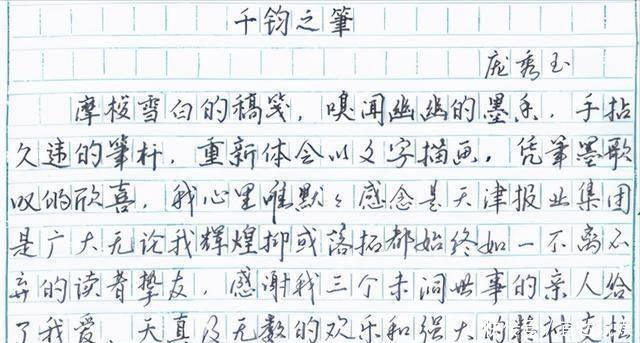 千钧之筆
庞秀玉
摩梭雪白的稿笺，嗅闻幽幽的墨香，手拈
久违的筆杆，重新体会以文字描画，凭筆墨歌
叹的欣喜，我心里唯默々感念是天津报业集团
是广大无论我辉煌抑或落拓都始终如一不离不
弃的读者挚友，感谢我三个未洞世事的亲人给
了我爱、天真及无数的欢乐和强大的精神支柱